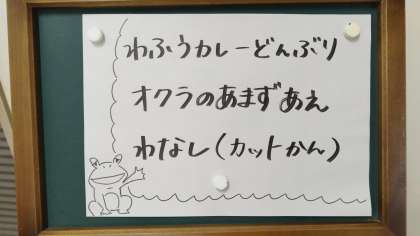 わふうカレーどんぶり
オクラのあまずあえ
わなし(カットかん)